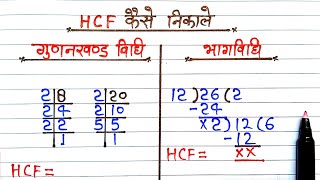 HCF कैसे निकाले
गुणनखण्ड विधि
भागविधि
2 8
2 4
2 2
1
2 20
2 10
5 5
1
HCF =
12 ) 26 ( 2
-24
x 2 ) 12 ( 6
-12
x x
HCF =